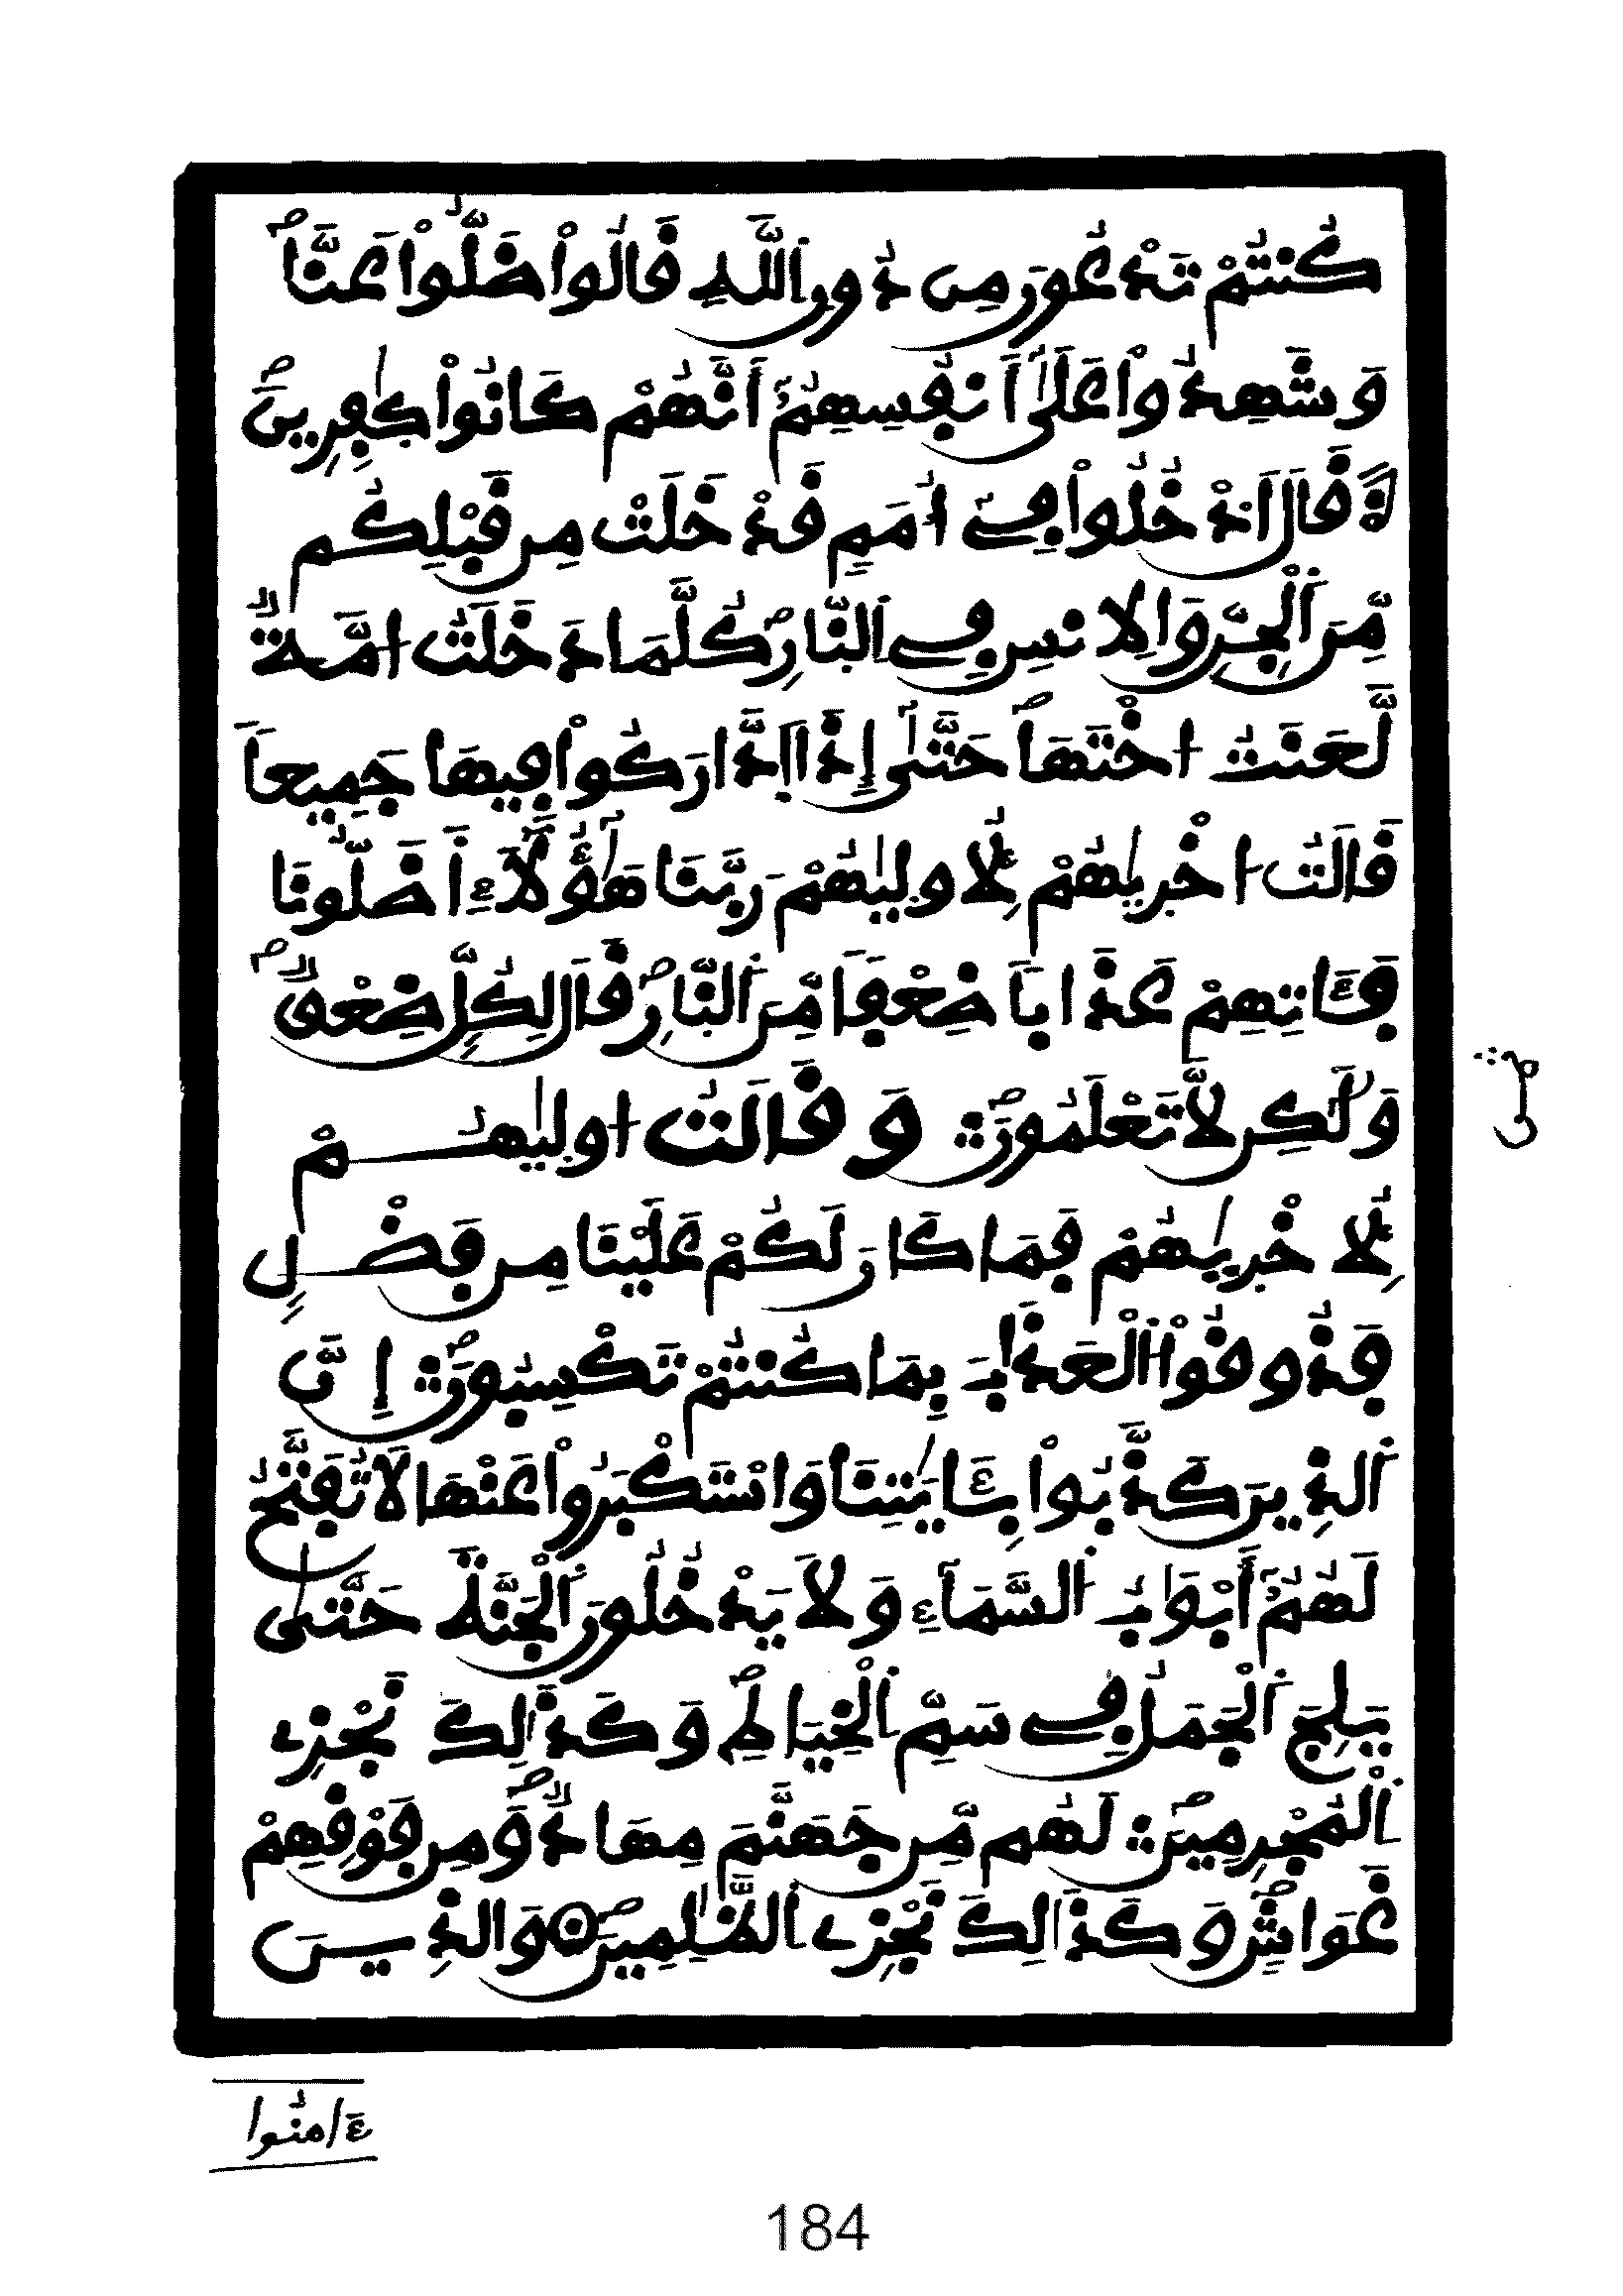 كُنتُمْ تَدْعُونَ مِن دُونِ اِللَّهِ قَالُواْ ضَلُّواْ عَنَّا
وَشَهِدُواْ عَلَىٰ أَنفُسِهِمُۥ أَنَّهُمْ كَانُواْ كَٰفِرِينَ
قَالَ اَدْخُلُواْ فِے أُمَمٍ قَدْ خَلَتْ مِن قَبْلِكُم
مِّنَ اَلْجِنِّ وَالِانسِ فِے اِلنَّارِ كُلَّمَا دَخَلَتُ امَّةٌ
لَّعَنَتُ اخْتَهَا حَتَّىٰ إِذَا اَدَّارَكُواْ فِيهَا جَمِيعاً
قَالَتُ اخْرَيٰهُمْ لِأُولَيٰهُمْ رَبَّنَا هَٰؤُلَآءِ أَضَلُّونَا
فَـَٔاتِهِمْ عَذَاباً ضِعْفاً مِّنَ اَلنَّارِ قَالَ لِكُلٍّ ضِعْفٌ
وَلَٰكِن لَّا تَعْلَمُونَ وَقَالَتُ اولَيٰهُـــمْ
لِأُخْرَيٰهُمْ فَمَا كَانَ لَكُمْ عَلَيْنَا مِن فَضْــلٍ
فَذُوقُواْ اُلْعَذَابَ بِمَا كُنتُمْ تَكْسِبُونَ إِنَّ
اَلذِينَ كَذَّبُواْ بِـَٔايَٰتِنَا وَاسْتَكْبَرُواْ عَنْهَا لَا تُفَتَّحُ
لَهُمُۥ أَبْوَابُ اُلسَّمَآءِ وَلَا يَدْخُلُونَ اَلْجَنَّةَ حَتَّىٰ
يَلِجَ اَلْجَمَلُ فِے سَمِّ اِلْخِيَاطِ وَكَذَٰلِكَ نَجْزِے
اِلْمُجْرِمِينَ لَهُم مِّن جَهَنَّمَ مِهَادٌ وَمِن فَوْقِهِمْ
غَوَاشٍ وَكَذَٰلِكَ نَجْزِے اِلظَّٰلِمِينَ وَالذِيــنَ
ءَامَنُوا
184